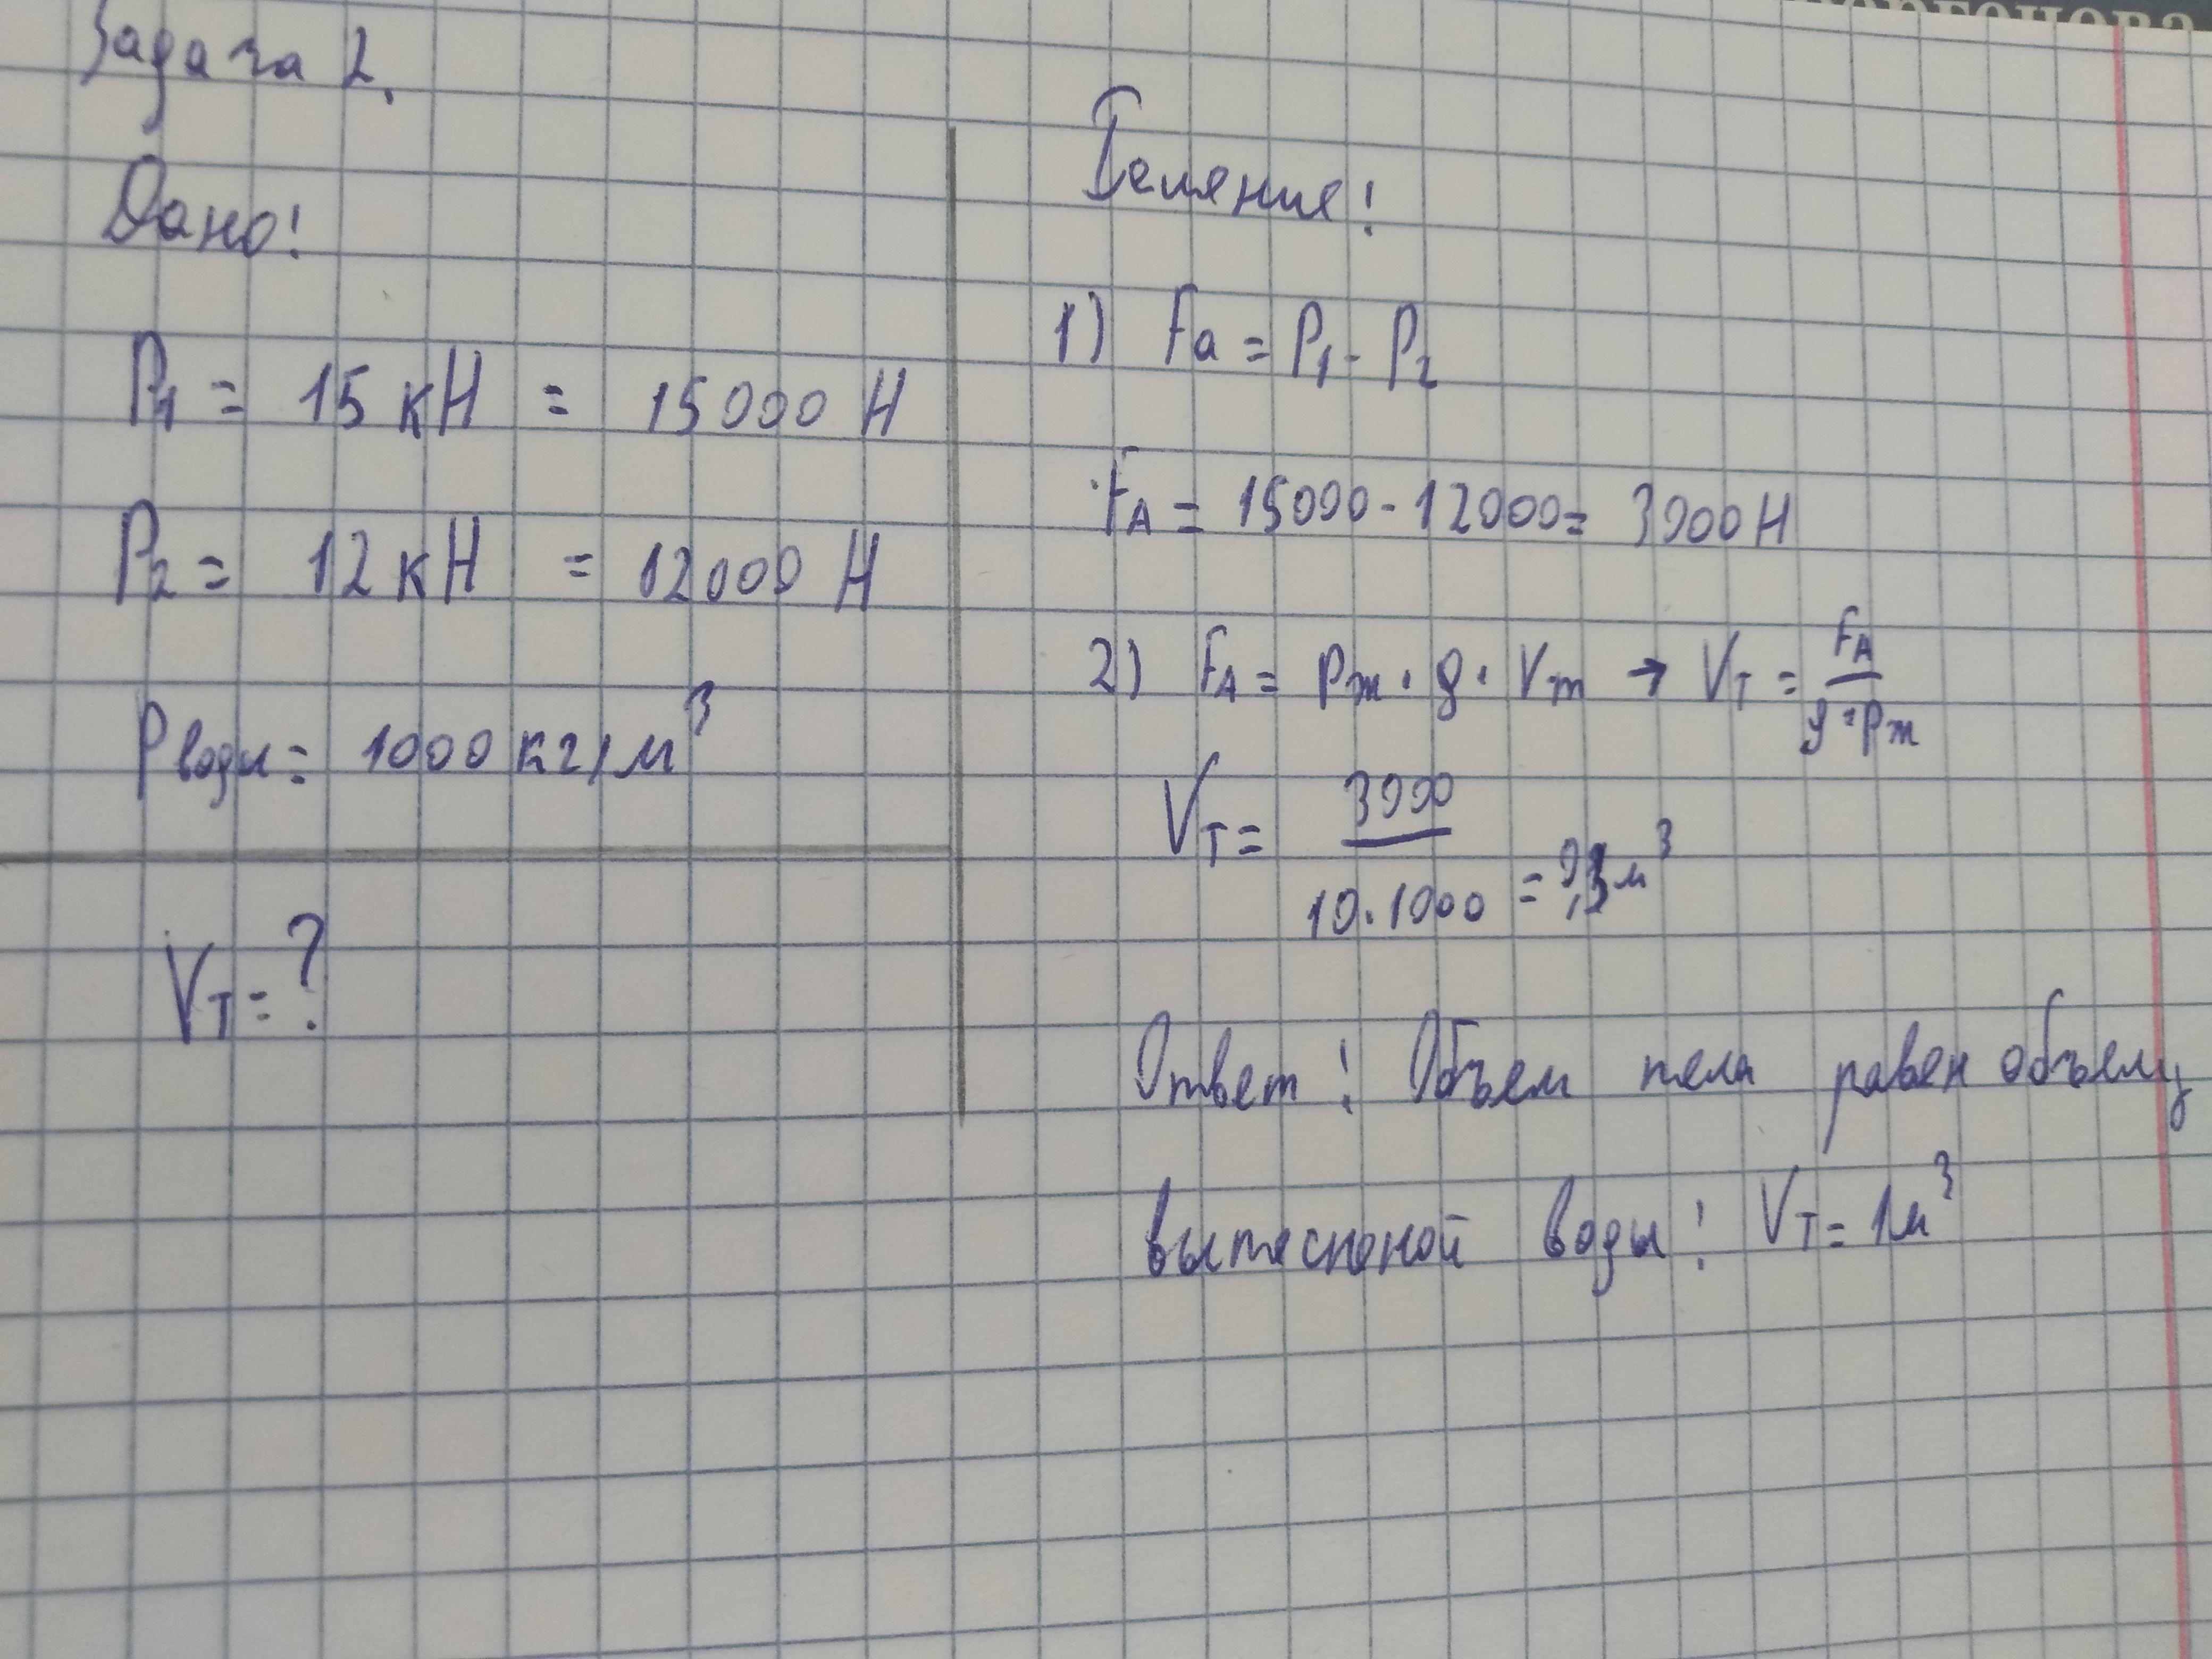 Задача 2.
Дано:
P1 = 15 кН = 15000 Н
P2 = 12 кН = 12000 Н
ρводы = 1000 кг/м³
Vт = ?
Решение:
1) Fа = P1 - P2
FА = 15000 - 12000 = 3000 Н
2) FА = ρж · g · Vт → Vт = FА / g · ρж
Vт = 3000 / 10 · 1000 = 0,3 м³
Ответ: Объем тела равен объему
вытесноной воды: Vт = 1м³